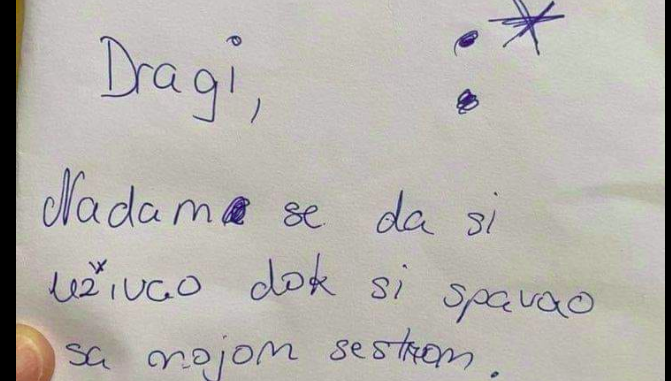 Dragi,
Nadam se da si
uživao dok si spavao
sa mojom sestrom.